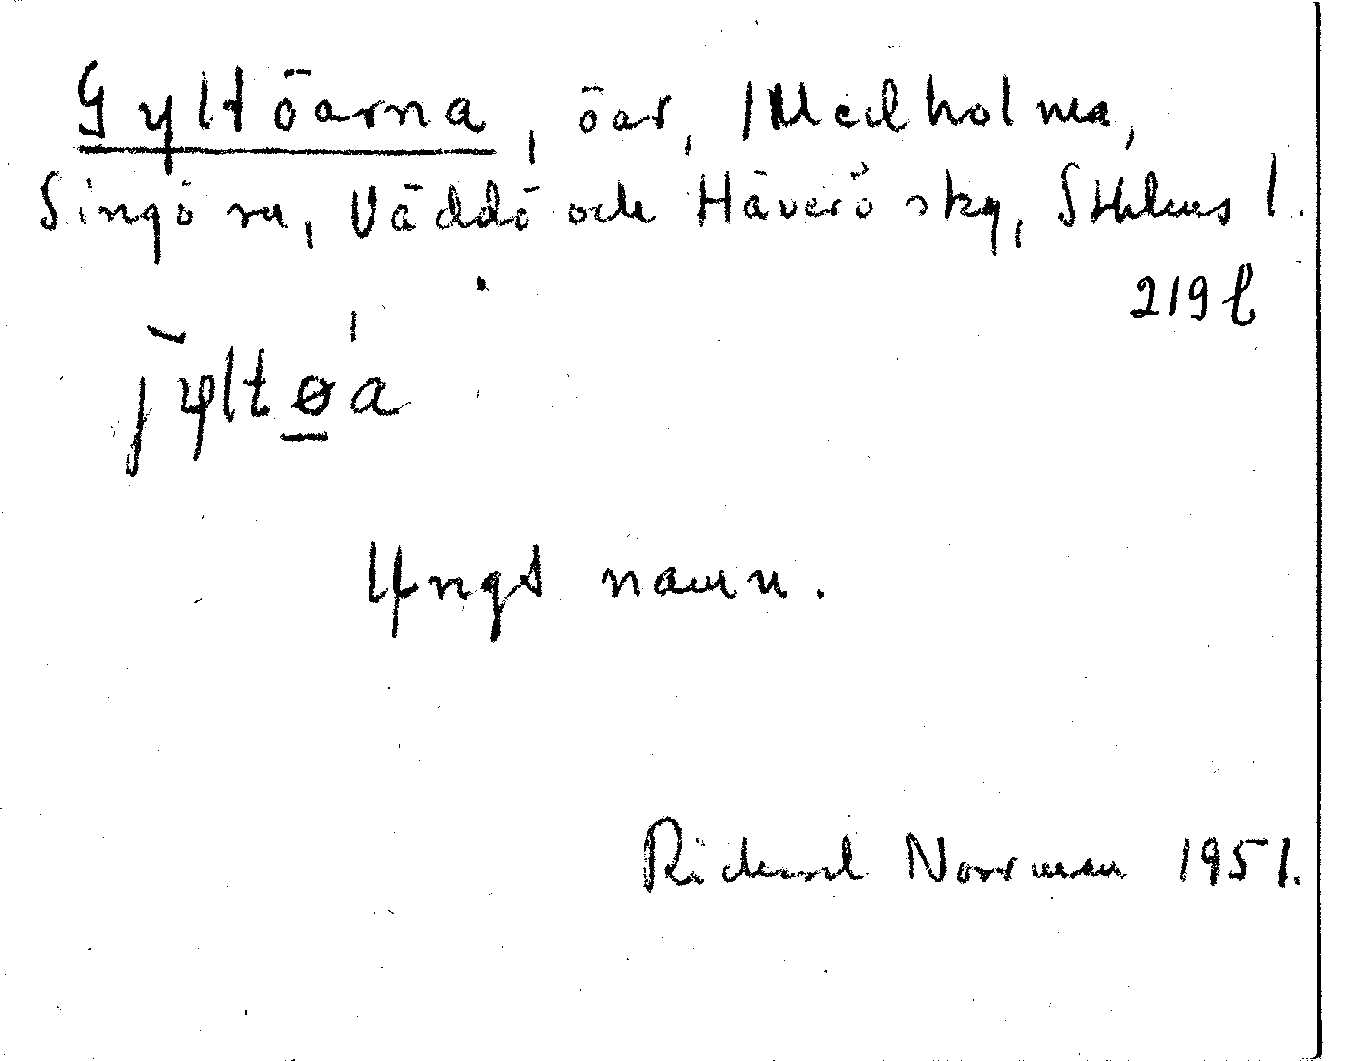 Gyltöarna, öar, Medholma,
Singö sn, Väddö och Häverö skg, Sthlms l.
219 l
jyltø̱a
Ungt namn.
Richard Norrman 1951.